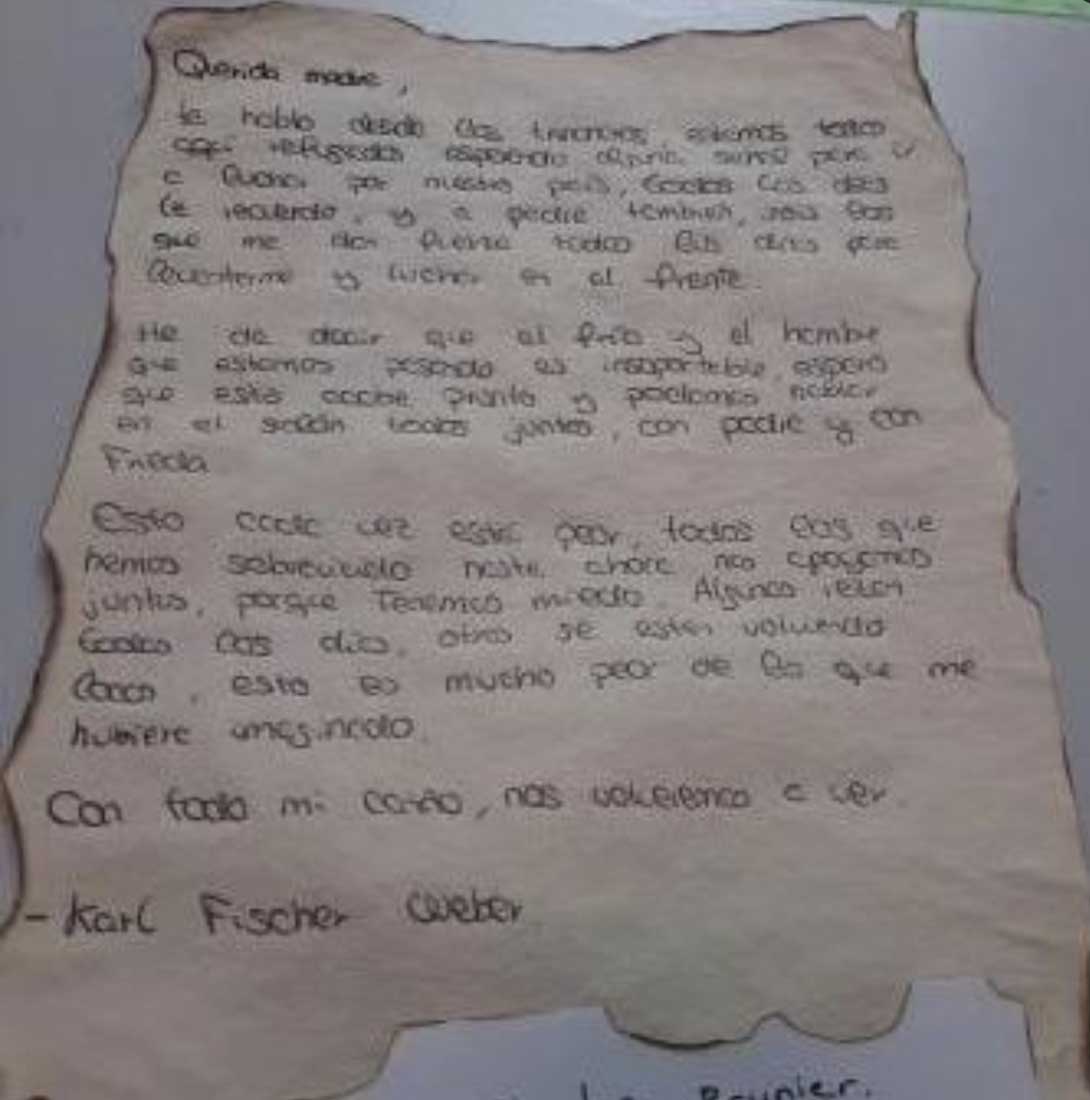 Querida madre,
te hablo desde las trincheras, estamos todos
aquí refugiados esperando alguna señal para ir
a luchar por nuestro país, todos los días
te recuerdo, y a padre tambien, sois los
que me dan fuerza todos los días para
levantarme y luchar en el frente.
He de decir que el frío y el hambre
que estamos pasando es insoportable, espero
que esto acabe pronto y podamos hablar
en el salón todos juntos, con padre y con
Frieda.
Esto cada vez está peor, todos los que
hemos sobrevivido hasta ahora nos apoyamos
juntos, porque Tenemos miedo. Algunos rezan
todos los días, otros se están volviendo
locos, esto es mucho peor de lo que me
hubiera imaginado.
Con todo mi cariño, nos volveremos a ver.
- Karl Fischer Weber